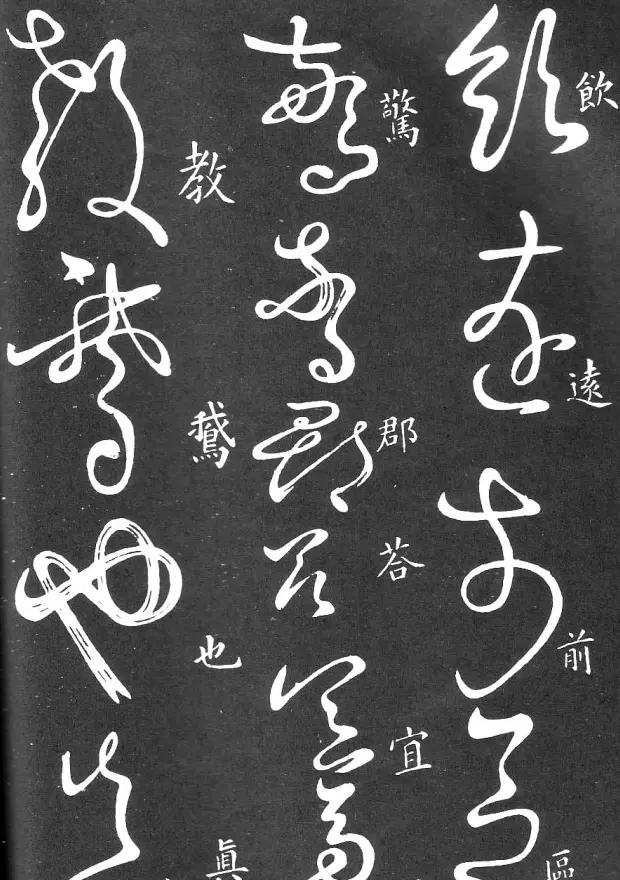 飲遠前區
驚郡荅宜
教鵞也眞